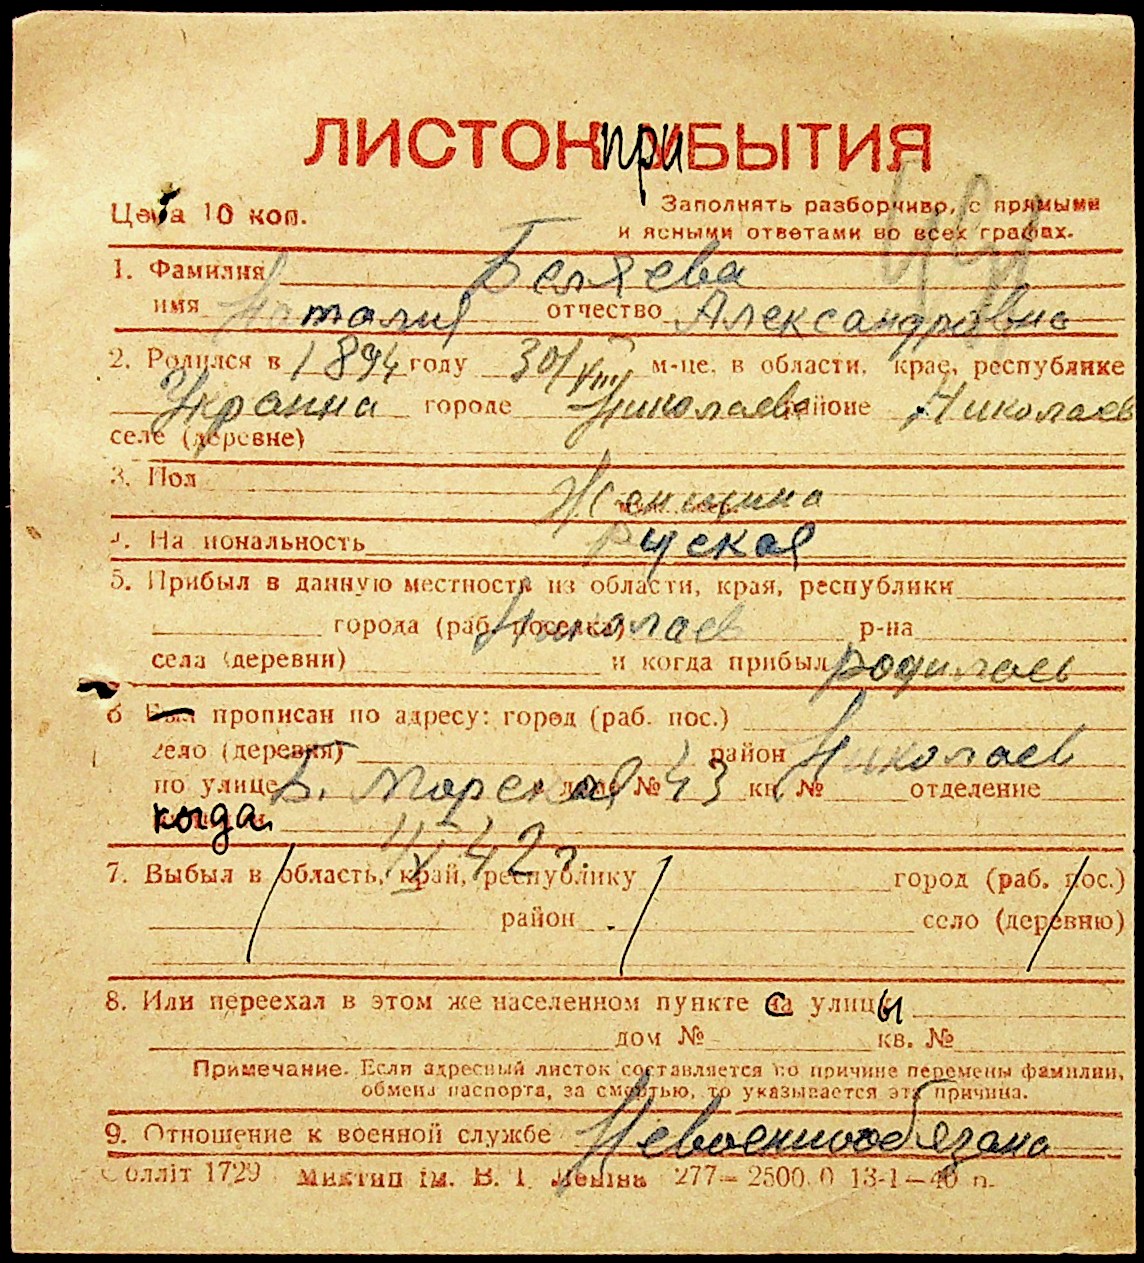 ЛИСТОК при БЫТИЯ
Цена 10 коп. Заполнять разборчиво, с прямыми
и ясными ответами во всех графах.
1. Фамилия Беляева
имя Наталия отчество Александровна
2. Родился в 1894 году 30/VIII м-це, в области, крае, республике
Украина городе Николаеве районе Николаев
селе (деревне)
3. Пол Женщина
4. Национальность Руская
5. Прибыл в данную местность из области, края, республики
города (раб. поселка) Николаев р-на
села (деревни) и когда прибыл родилась
6 Был прописан по адресу: город (раб. пос.)
село (деревня) район Николаев
по улице Б. Морская дом № 43 кв. № отделение
когда
11/X 42 г.
7. Выбыл в область, край, республику город (раб. пос.)
район село (деревню)
8. Или переехал в этом же населенном пункте с улицы
дом № кв. №
Примечание. Если адресный листок составляется по причине перемены фамилии,
обмена паспорта, за смертью, то указывается эта причина.
9. Отношение к военной службе Невоеннообязана
Облліт 1729 Миктип ім. В. І. Леніна 277—2500.0 13-1—40 п.